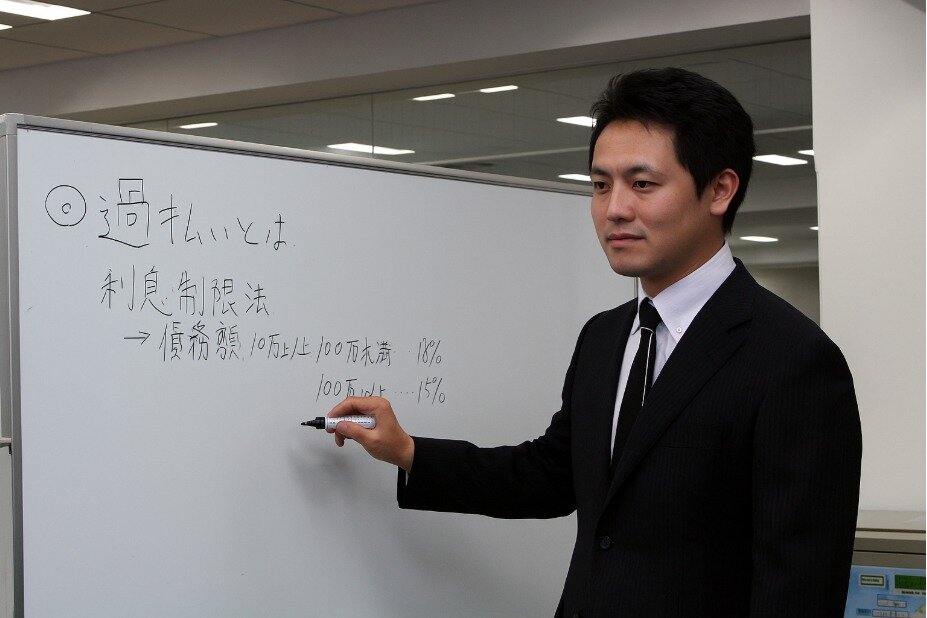 ◎過払いとは
利息制限法
→債務額 10万以上100万未満…18%
100万以上……15%